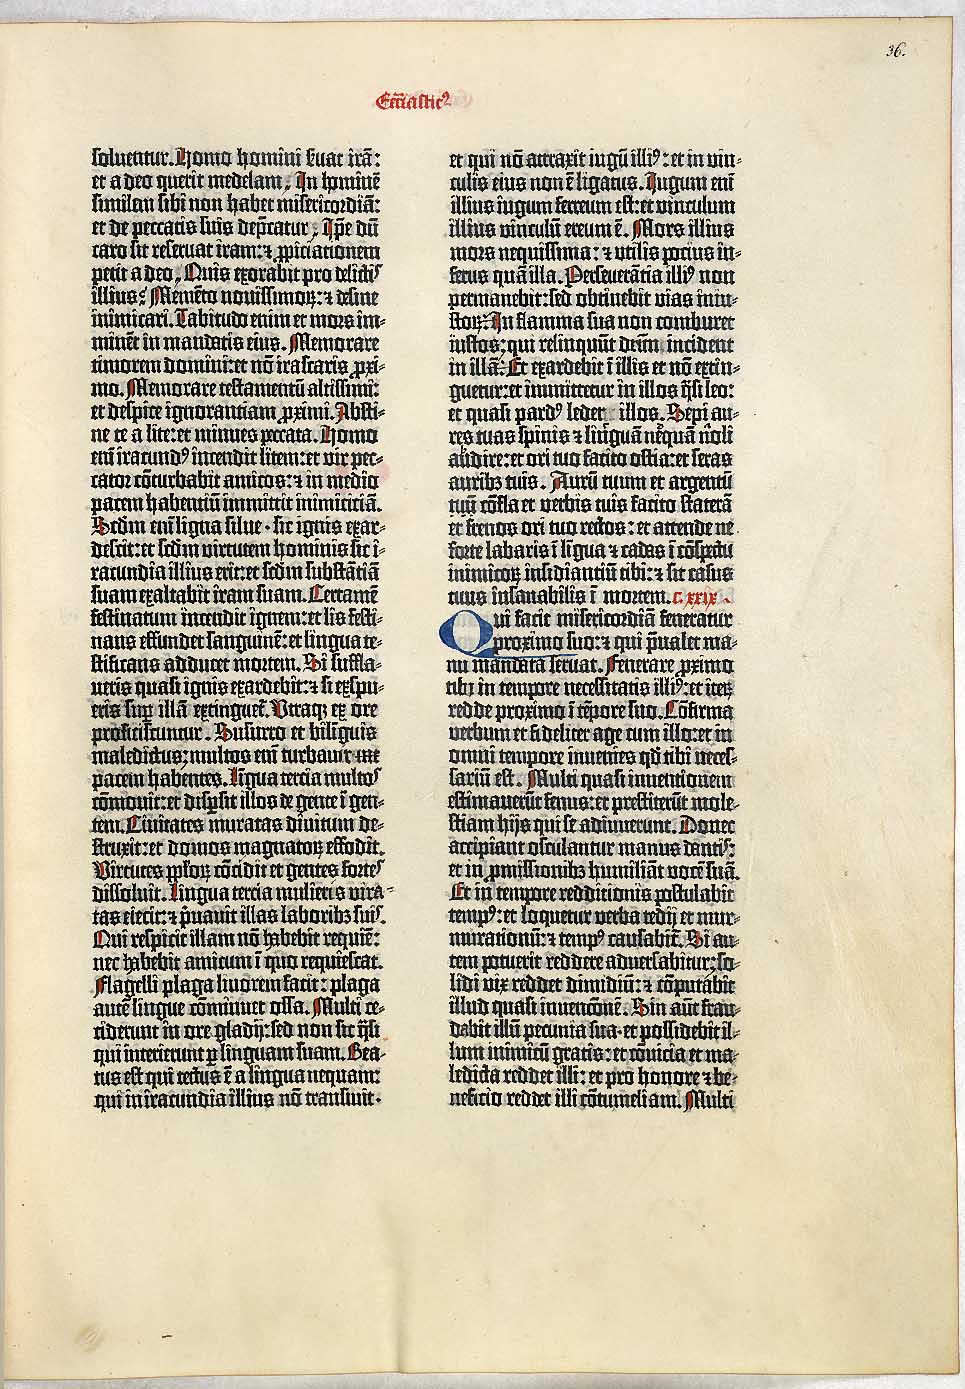 36.
Eccl̄iastic⁹
soluentur. Homo homini s̄uat irā:
et a deo querit medelam; In hominē
similem sibi non habet misericordiā:
et de peccatis suis dep̄catur; Ip̄e dū
caro sit reseruat iram: ⁊ ꝓpiciationem
petit a deo; Quis exorabit pro delictis
illius? Memēto nouissimoꝝ: ⁊ desine
inimicari. Tabitudo enim et mors im-
minēt in mandatis eius. Memorare
timorem domini: et nō irascaris ꝓxi-
mo. Memorare testamentū altissimi:
et despice ignorantiam ꝓximi. Absti-
ne te a lite: et minues peccata. Homo
eni᷑ iracund⁹ incendit litem: et vir pec-
cator cōturbabit amicos: ⁊ in medio
pacem habentiū immittit inimiciciā.
Scdm̄ enī ligna silue· sic ignis exar-
descit: et scdm̄ virtutem hominis sic i-
racundia illius erit: et scdm̄ substātiā
suam exaltabit iram suam. Certamē
festinatum incendit ignem: et lis festi-
nans effundet sanguinē: et lingua te-
stificans adducet mortem. Si suffla-
ueris quasi ignis exardebit: ⁊ si expu-
eris sup̄ illā extinguet᷑. Vtraqꝫ ex ore
proficiscuntur. Susurro et bilinguis
maledictus: multos enī turbauit
pacem habentes. Līgua tercia multos
cōmouit: et disp̄sit illos de gente ī gen-
tem. Ciuitates muratas diuitum de-
struxit: et domos magnatoꝝ effodit.
Virtutes pp̄loꝝ cōcidit et gentes fortes
dissoluit. Lingua tercia mulieris vira-
tas eiecit: ⁊ p̄uauit illas laboribꝫ suis.
Qui respicit illam nō habebit requiē:
nec habebit amicum ī quo requiescat.
Flagelli plaga liuorem facit: plaga
autē lingue cōminuet ossa. Multi ce-
ciderunt in ore gladij: sed non sic q̄si
qui interierunt ꝑ linguam suam. Bea-
tus est qui tectus ē a lingua nequam:
qui in iracundia illius nō transiuit·
et qui nō attraxit iugū illi⁹: et in vin-
culis eius non ē ligatus. Iugum enī
illius iugum ferreum est: et vinculum
illius vinculū ereum ē. Mors illius
mors nequissima: ⁊ vtilis pocius in-
ferus quā illa. Perseuerātia illi⁹ non
permanebit: sed obtinebit vias iniu-
stoꝝ: In flamma sua non comburet
iustos; qui relinquūt deum, incident
in illā: Et exardebit ī illis et nō extin-
guetur: et immittetur in illos q̄si leo:
et quasi pard⁹ ledet illos. Sepi au-
res tuas spinis ⁊ linguā nequā noli
audire: et ori tuo facito ostia: et seras
auribꝫ tuis. Aurū tuum et argentū
tuū cōfla et verbis tuis facito staterā
et frenos ori tuo rectos: et attende ne
forte labaris ī ligua ⁊ cadas ī cōspectu
inimicoꝝ insidiantiū tibi: ⁊ sit casus
tuus insanabilis ī mortem. c. xxix.
Qui facit misericordiā feneratur
proximo suo: ⁊ qui p̄ualet ma-
nu mandata seruat. Fenerare ꝓximo
tibi in tempore necessitatis illi⁹: et iteꝝ
redde proximo ī tēpore suo. Cōfirma
verbum et fideliter age cum illo: et in
omni tempore inuenies qd̄ tibi neces-
sariū est. Multi quasi inuentionem
estimauerūt fenus: et prestiterūt mole-
stiam hijs qui se adiuuerunt. Donec
accipiant osculantur manus dantis:
et in ꝓmissionibꝫ humiliāt vocē suā.
Et in tempore redditionis postulabit
temp⁹: et loquetur verba tedij et mur-
murationū: ⁊ temp⁹ causabit᷑. Si au-
tem potuerit reddere aduersabitur: so-
lidi vix reddet dimidiū: ⁊ cōputabit
illud quasi inuencōnē. Sin aūt frau-
dabit illū pecunia sua· et possidebit il-
lum inimicū gratis: et cōuicia et ma-
ledicta reddet illi: et pro honore ⁊ be-
neficio reddet illi cōtumeliam. Multi